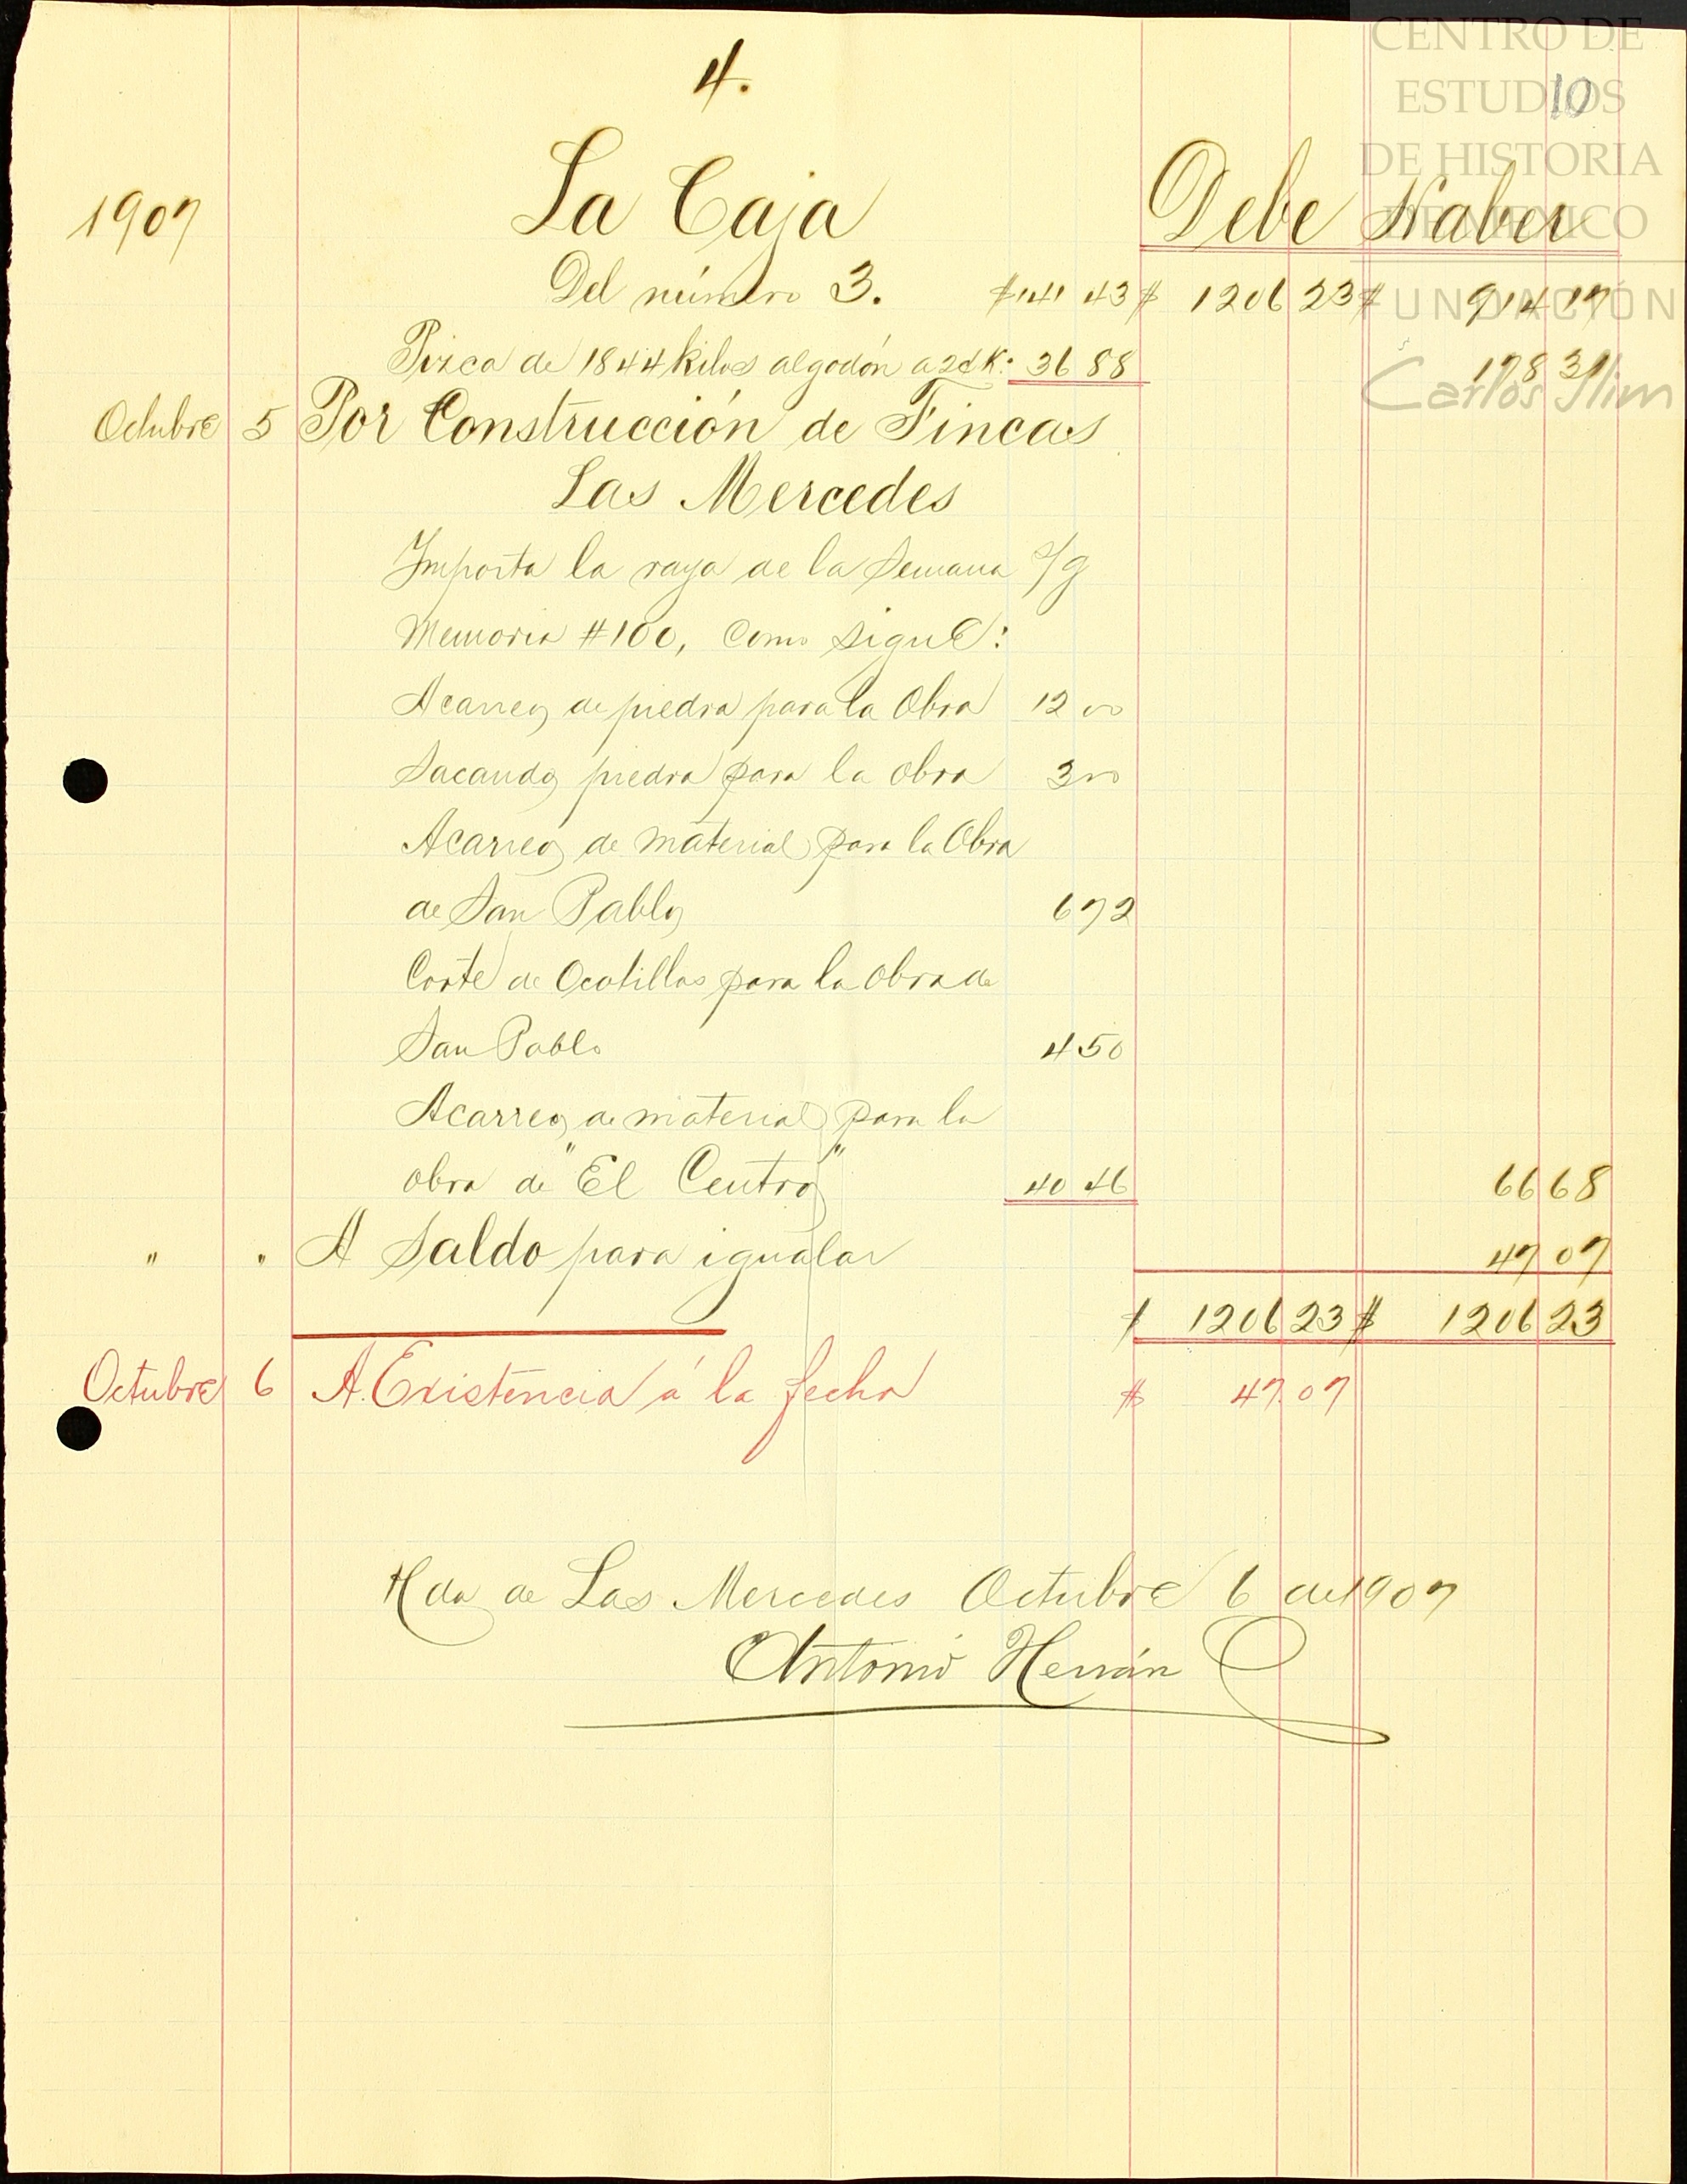 4.
10
CENTRO DE
ESTUDIOS
DE HISTORIA
DE MÉXICO
FUNDACIÓN
Carlos Slim
1907 La Caja Debe Haber
Del número 3. $141 43 $ 1206 23 $ 914 17
Pizca de 1844 kilos algodón a 2¢ K. 36 88 178 31
Octubre 5 Por Construcción de Fincas
Las Mercedes
Importa la raya de la Semana s/g
Memoria #100, como sigue:
Acarreo de piedra para la Obra 12 00
Sacando piedra para la obra 3 00
Acarreo de material para la Obra
de San Pablo 6 72
Corte de Ocotillos para la obra de
San Pablo 4 50
Acarreo de material para la
obra de "El Centro" 40 46 66 68
" " A Saldo para igualar 47 07
$ 1206 23 $ 1206 23
Octubre 6 A Existencia á la fecha $ 47.07
Hda de Las Mercedes Octubre 6 de 1907
Antonio Hernán